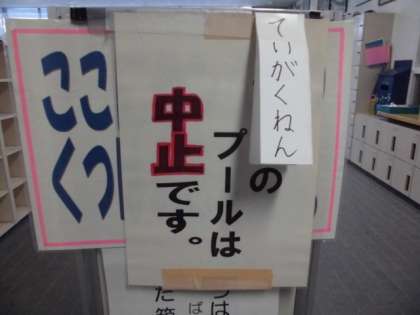 ていがくねん
の
プールは
中止です。
ここ
くつ
つは
ば
た